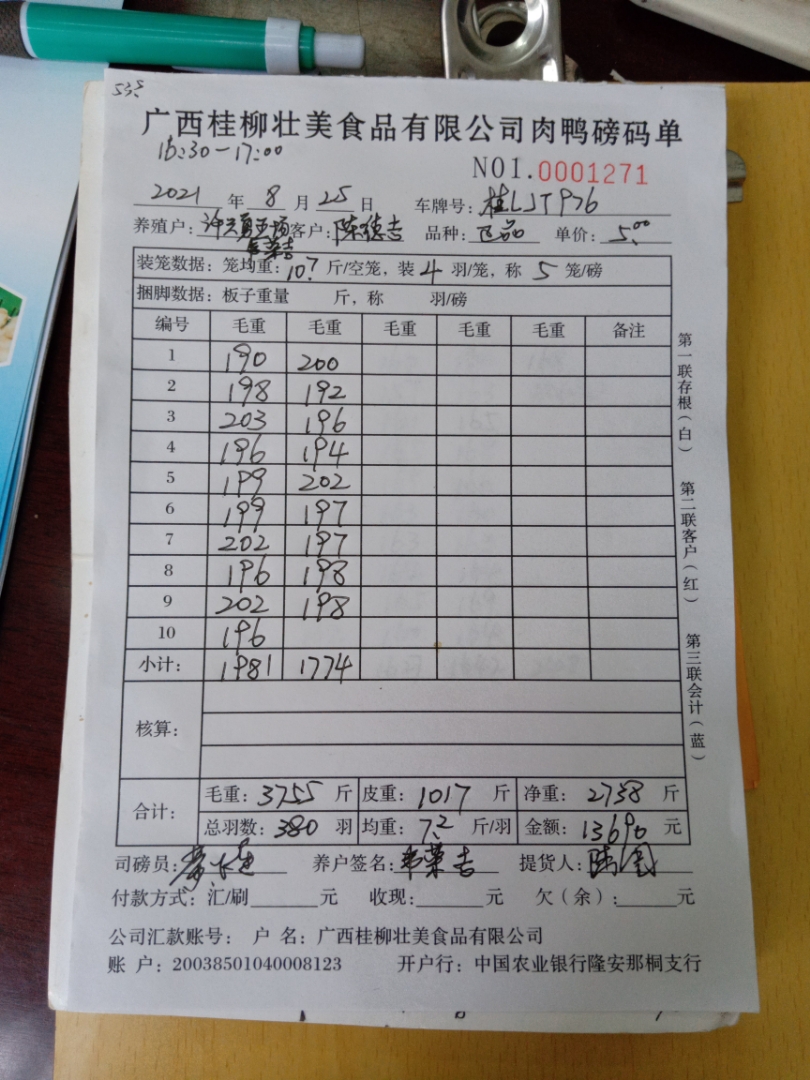 53.5
广西桂柳壮美食品有限公司肉鸭磅码单
16:30-17:00
NO1.0001271
2021 年 8 月 25 日 车牌号: 桂LJT976
养殖户: 客户: 陈德吉 品种: 正品 单价: 5.00
韦荣吉
装笼数据: 笼均重: 10.7 斤/空笼, 装 4 羽/笼, 称 5 笼/磅
捆脚数据: 板子重量 斤, 称 羽/磅
编号 毛重 毛重 毛重 毛重 毛重 备注
1 190 200
2 198 192
3 203 196
4 196 194
5 199 202
6 199 197
7 202 197
8 196 198
9 202 198
10 196
小计: 1981 1774
核算:
合计: 毛重: 3755 斤 皮重: 1017 斤 净重: 2738 斤
总羽数: 380 羽 均重: 7.2 斤/羽 金额: 13690 元
司磅员: 养户签名: 韦荣吉 提货人:
付款方式: 汇/刷 元 收现: 元 欠(余): 元
公司汇款账号: 户 名: 广西桂柳壮美食品有限公司
账 户: 20038501040008123 开户行: 中国农业银行隆安那桐支行
第一联存根(白) 第二联客户(红) 第三联会计(蓝)